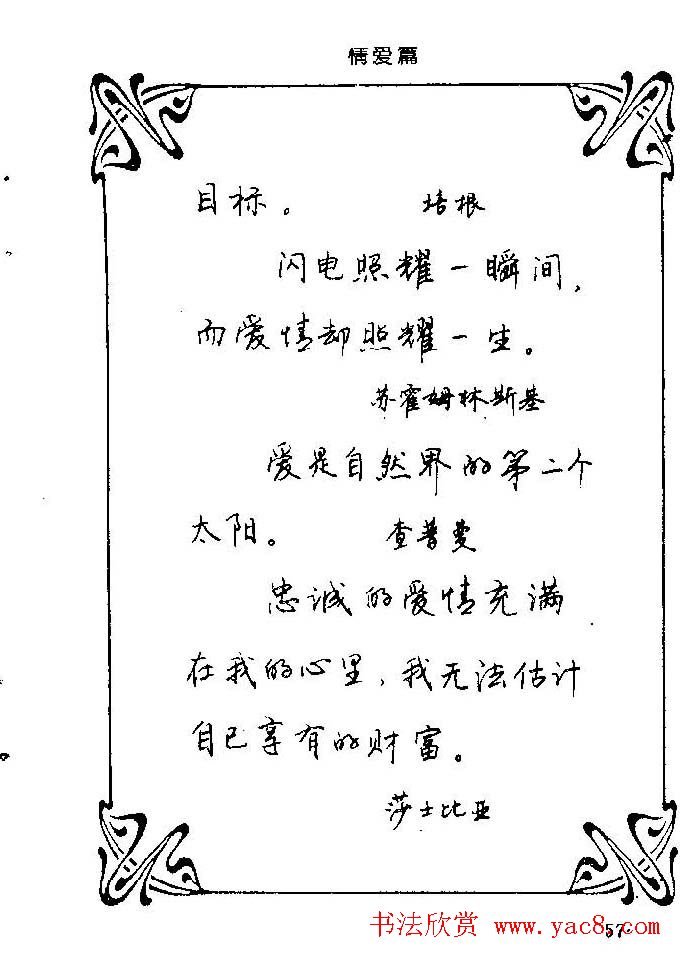 情爱篇
目标。 培根
闪电照耀一瞬间,
而爱情却照耀一生。
苏霍姆林斯基
爱是自然界的第二个
太阳。 查普曼
忠诚的爱情充满
在我的心里、我无法估计
自已享有的财富。
莎士比亚
书法欣赏 www.yac8.com
57